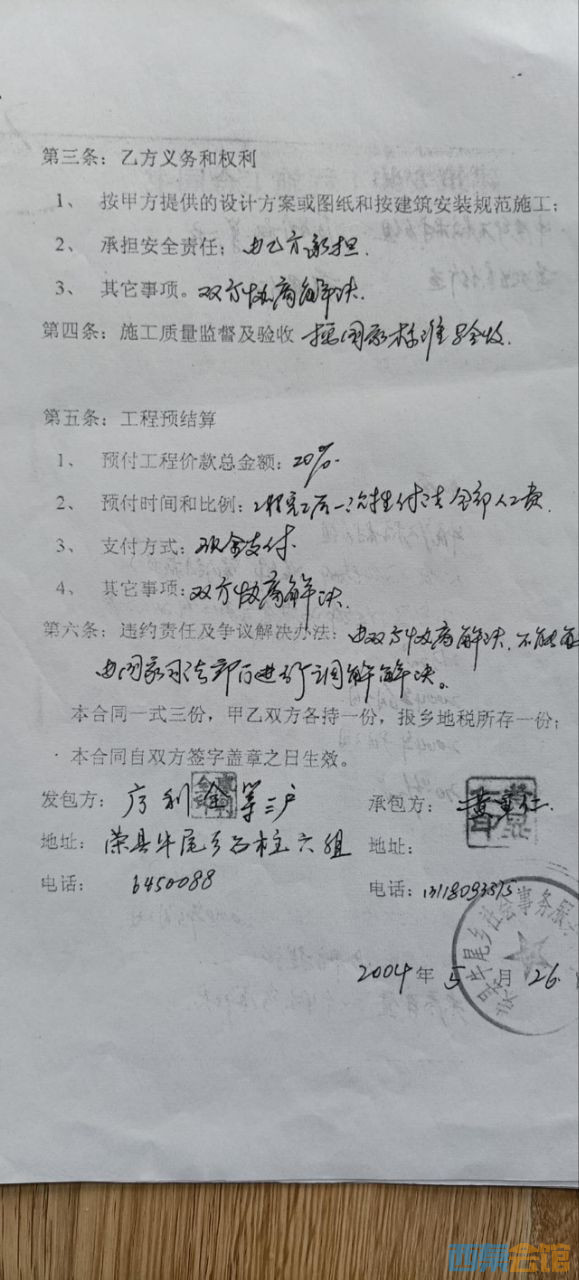 第三条：乙方义务和权利
1、 按甲方提供的设计方案或图纸和按建筑安装规范施工；
2、 承担安全责任；由乙方承担.
3、 其它事项。双方协商解决.
第四条：施工质量监督及验收 按国家标准验收.
第五条：工程预结算
1、 预付工程价款总金额：20%.
2、 预付时间和比例：工程完工后一次性付清全部人工费.
3、 支付方式：现金支付.
4、 其它事项：双方协商解决.
第六条：违约责任及争议解决办法：由双方协商解决.不能
由国家司法部门进行调解解决。
本合同一式三份，甲乙双方各持一份，报乡地税所存一份；
本合同自双方签字盖章之日生效。
发包方： 利金等三户 承包方：
地址： 荣县牛尾乡石柱六组 地址：
电话： 6450088 电话：
牛尾乡社会事务服
2004年5月26
西菜会馆